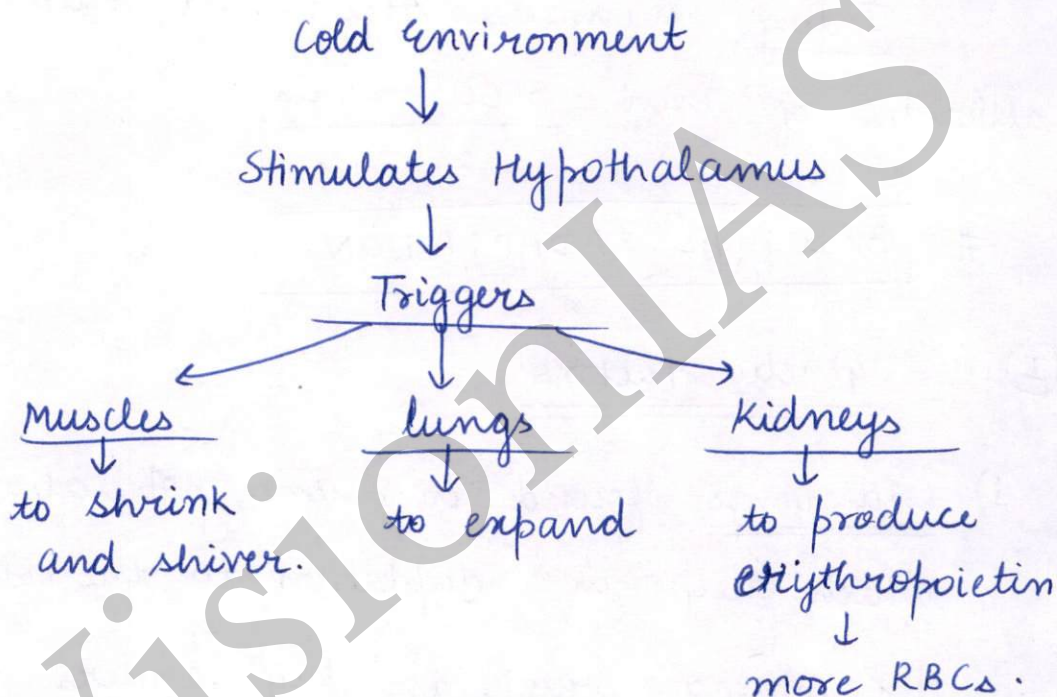 Cold Environment
↓
Stimulates Hypothalamus
↓
Triggers
Muscles
↓
to shrink
and shiver.
lungs
↓
to expand
Kidneys
↓
to produce
erythropoietin
↓
more RBCs.
VisionIAS